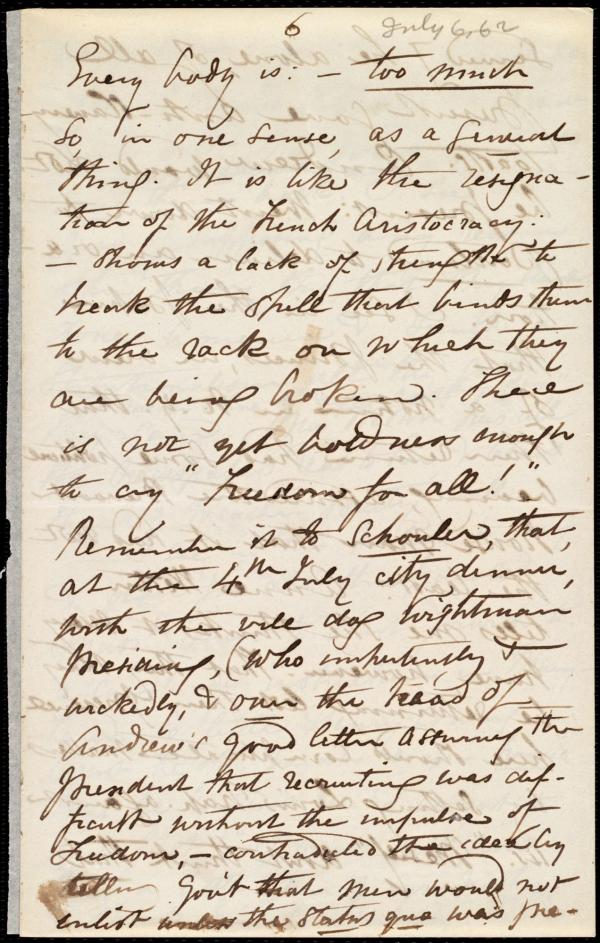 6 July 6, 62
Every body is: - too much
so, in one sense, as a general
thing. It is like the resigna-
tion of the French Aristocracy:
- shows a lack of strength to
break the spell that binds them
to the rack on which they
are being broken. There
is not yet boldness enough
to cry "Freedom for all!"
Remember it to Schouler, that,
at the 4th July city dinner,
with the vile dog Wightman
presiding, (who impertinently &
wickedly, & over the head of
Andrew's good letter assuring the
President that recruiting was dif-
ficult without the impulse of
Freedom, - contradicted the idea by
telling Gov't that men would not
enlist unless the status quo was pre-